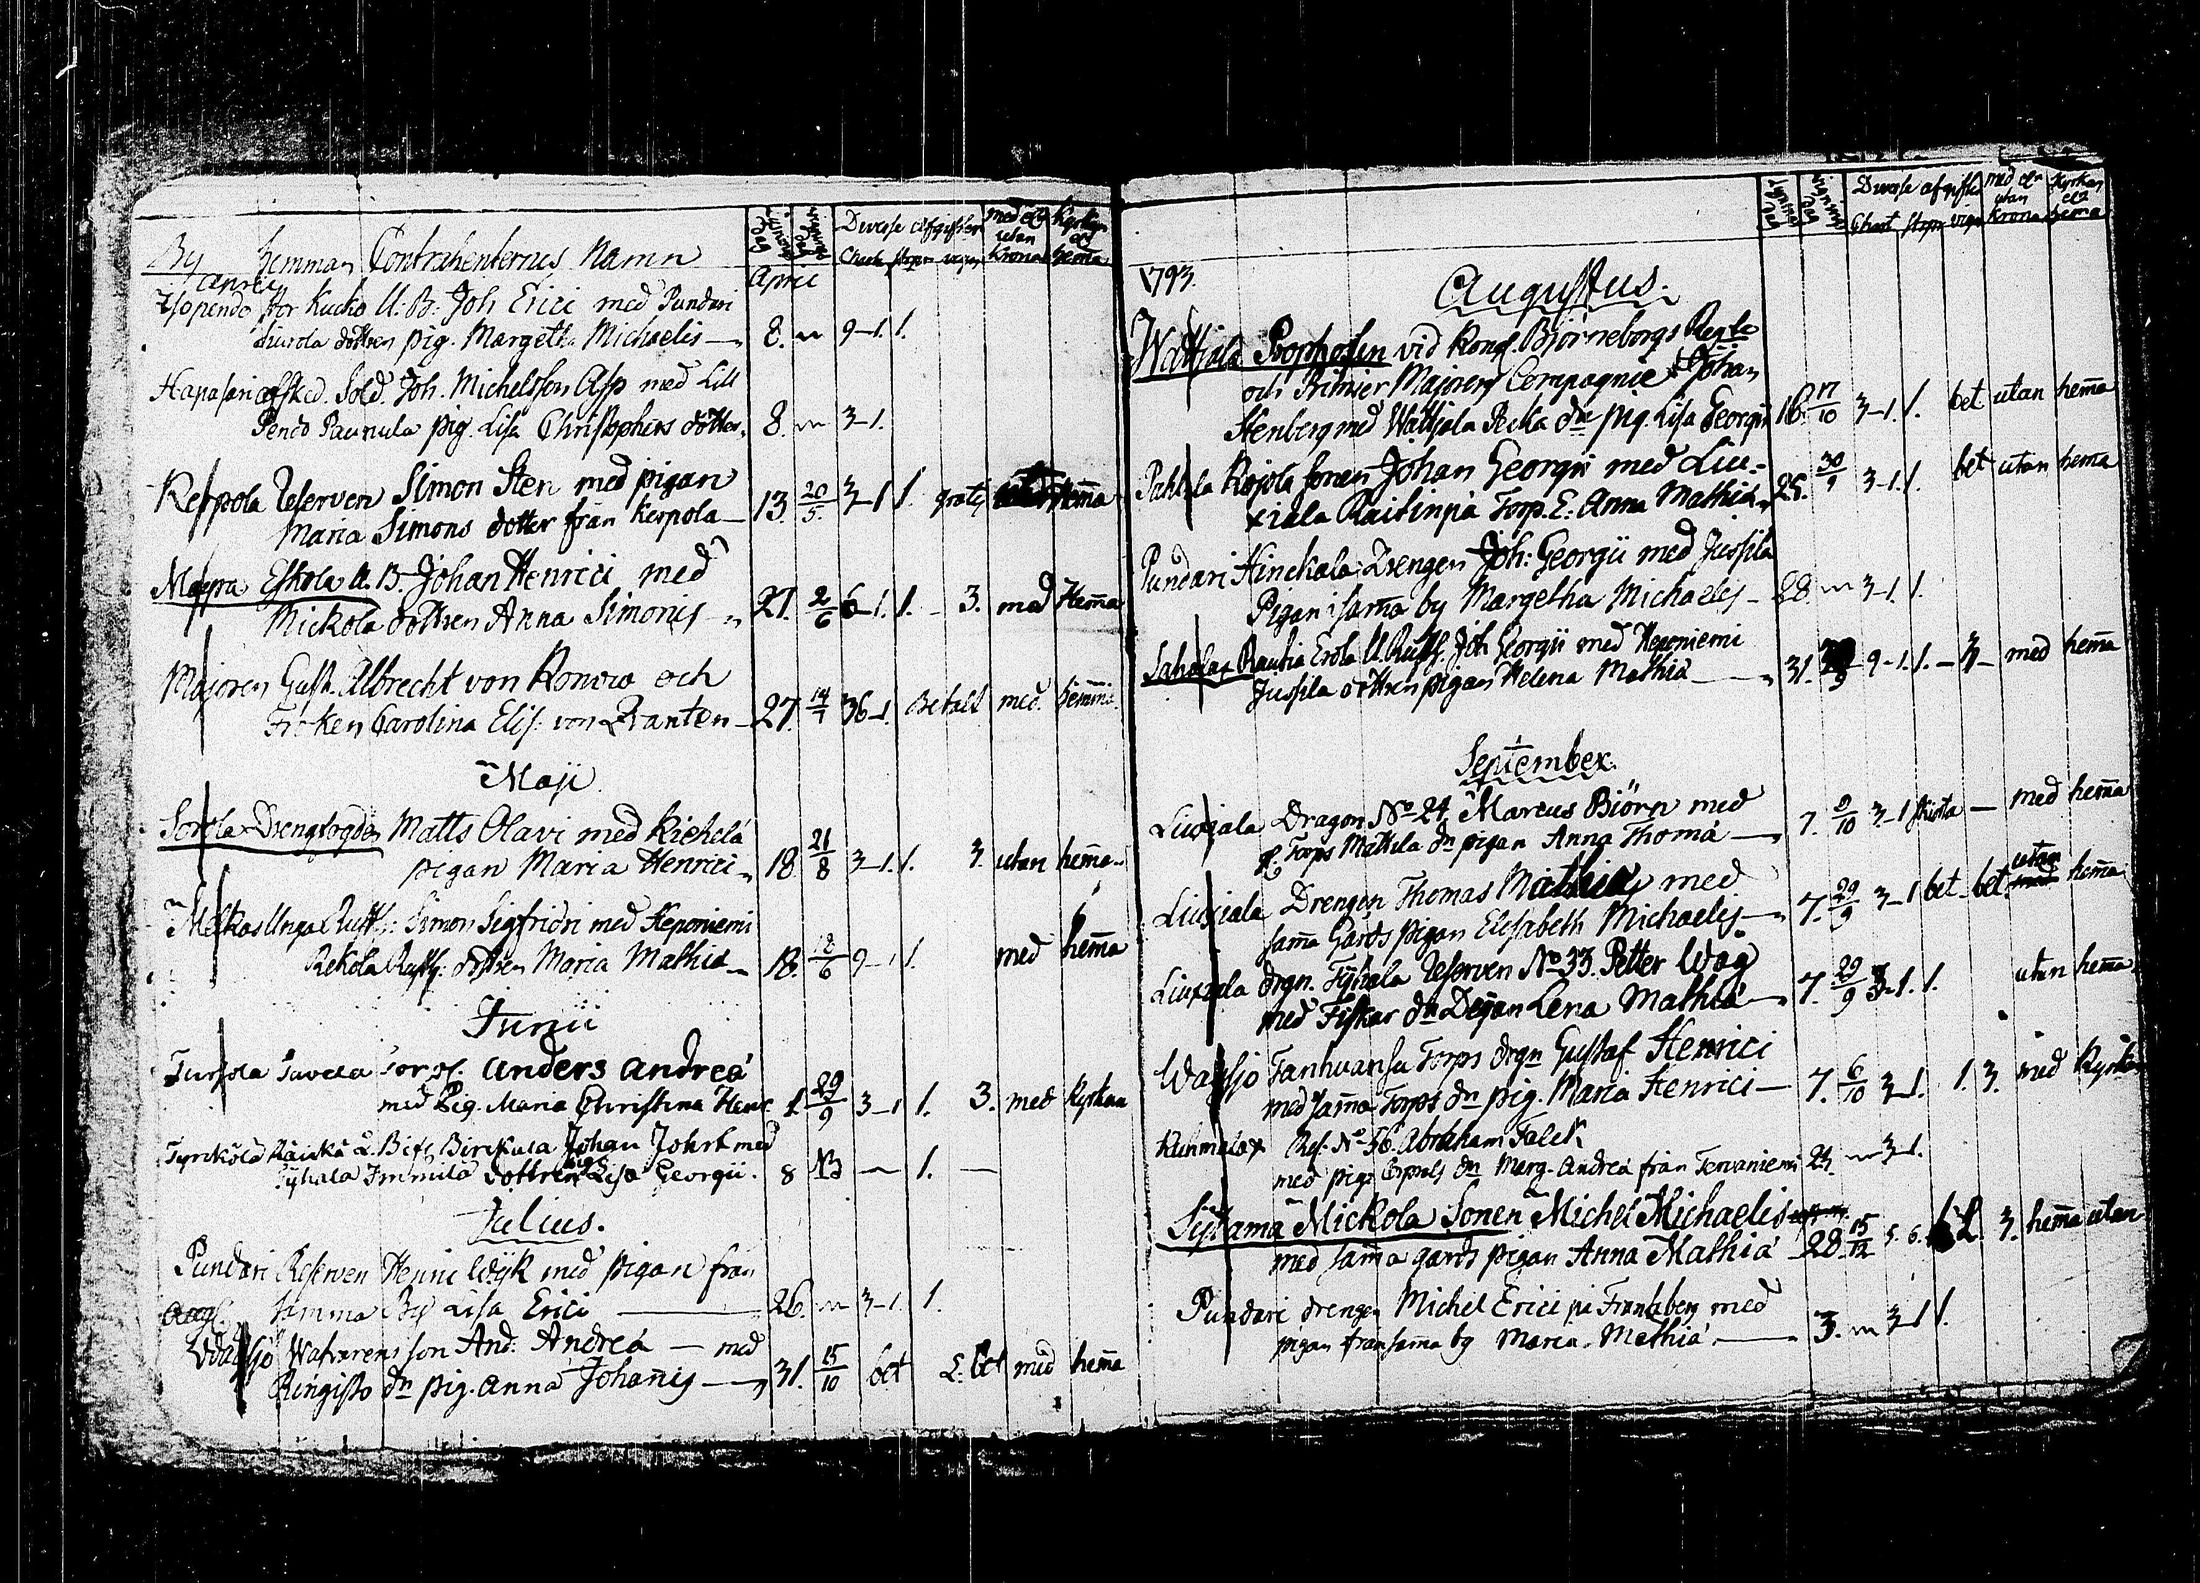 By Hemman Contrahenternes Namn Diverse afgifter med eller utan Krona Kyrkan hemma
April April
Isopendo stor Kucko U: B: Joh Erici med Pundari
dottren pig. Margeth. Michaelis 8. 9-1. 1.
Hapasari afsked. Sold. Joh. Michelsson Asp med Lill
Pendo Paunula pig. Lisa Christophers dotter 8. 3-1.
Kerpola Reserven Simon Sten med pigan
Maria Simons dotter från Kerpola 13. 20/5. 3-1 1. gratis hemma
Eskola U. B. Johan Henrici med
Mickola dottren Anna Simonis 21. 2/6 6-1. 1. - 3. med Hem̄a
Majoren Gust. Albrecht von Konow och
Fröken Carolina Elis. von Qvanten 27. 14/7 36-1. Betalt med. hemma
Maji
Sorola Drengfogden Matts Olavi med Kiehelä
pigan Maria Henrici 18. 21/8 3-1. 1. 3. utan hem̄a
Melkas Unga RustH: Simon Sigfridri med Heponiemi
Rekola RustH: dottren Maria Mathiæ 18. 18/6 9-1 1. med hem̄a
Junii
Tursola Tavela Torp. Anders Andreä
med Pig. Maria Christina Henr. 1. 29/9 3-1 1. 3. med Kyrkan
Räickä L. Johan Johst med
Tyhala Immilä dottren pig Lisa Georgii. 8 1.
Julius.
Pundari Reserven Henric Wijk med pigan från
samma By Lisa Erici 26. 3-1. 1.
Wahsjo Watvarens son And: Andreä med
Ringisto dn pig. Anna Johanis 31. 15/10 bet L. bet med hem̄a
Diverse afgifter med elr utan Krona Kyrkan elr hema
1793. Augustus.
Wättiala Profossen vid Kongl. Björneborgs Regte
och Primier Majorens Compagnie Johan
Stenberg med Wättiala Pecka dn pig. Lisa Georgii 16. 17/10 3-1. 1. bet utan hem̄a
Pahkala Rojola sonen Johan Georgii med Liu-
xiala Raitinpä Torp. E: Anna Mathiä 25. 30/9 3-1. 1. bet utan hema
Pundari Hinckala Drengen Joh: Georgii med Jussila
Pigan i sam̄a by Margetha Michaelis 28. 3-1. 1.
Sahalax Rautia Erola U. RustH. Joh Georgii med Heponiemi
Jussila dottren pigan Helena Mathiä 31. 9-1. 1. - 3- med hem̄a
September.
Liuxiala Dragon No 24. Marcus Biörn med
Torps Mattila dn pigan Anna Thomä 7. 9/10 3-1 med hem̄a
Liuxiala Drengen Thomas Mathiæ med utan
sam̄a Gårds pigan Elisabeth Michaelis 7. 29/9 3-1 bet. bet. med hem̄a
Liuxiala drgn. Tyhala Reserven No 33. Petter Wåg
med Fiskar dn Dejan Lena Mathiä 7. 29/9 3-1. 1. utan hem̄a.
Wahsjo Tanhuansu Torps drgn Gustaf Henrici
med sam̄a Torps dn pig. Maria Henrici 7. 6/10 3-1. 1. 3. med Kyrkan
Kuhmalax Res. No 56. Abraham Falck
med pigs Corprals dn Marg. Andreä från Tervaniemi 23. 3-1.
Mickola Sonen Michel Michaelis
med sam̄a gårds pigan Anna Mathiä 28. 15/12 5. 6. 3. hem̄a utan
Pundari drengen Michel Erici på Frantzberg med
pigan från sam̄a by Maria Mathiä 3. 3-1 1.